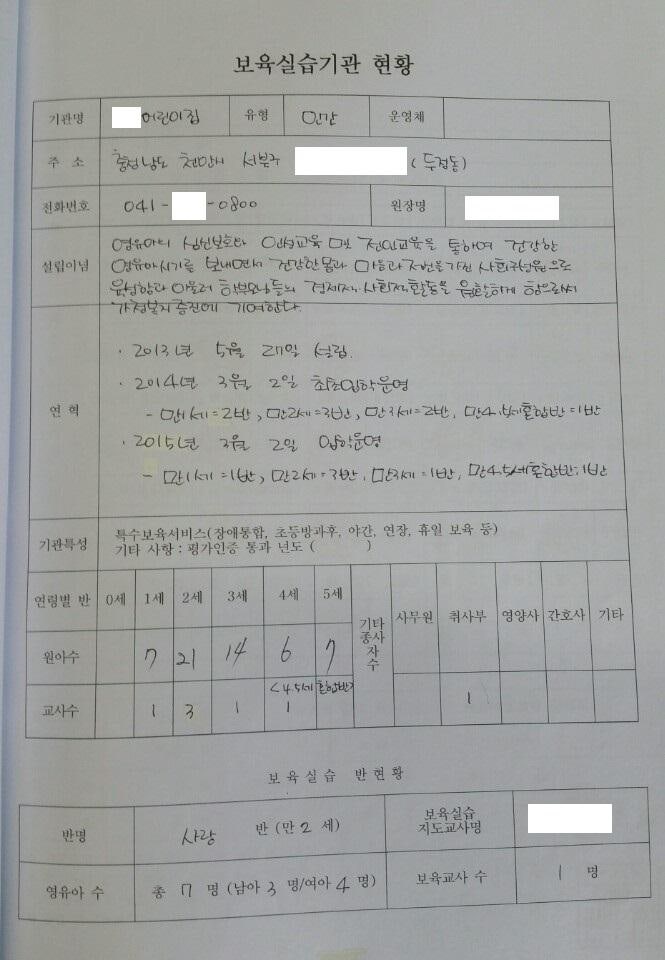 보육실습기관 현황
기관명 어린이집 유형 민간 운영체
주 소 충청남도 천안시 서북구 (두정동)
전화번호 041- -0800 원장명
설립이념 영유아의 심신보호와 인성교육 및 전인교육을 통하여 건강한
영유아시기를 보내면서 건강한 몸과 마음과 자번을 가진 사회구성원으로
육성함과 아울러 학부모님들의 경제적·사회적활동을 원활하게 함으로써
가정복지증진에 기여한다.
연 혁
· 2013년 5월 27일 설립.
· 2014년 3월 2일 최초입학운영
- 만1세=2반, 만2세=3반, 만3세=2반, 만4.5세혼합반=1반
· 2015년 3월 2일 입학운영
- 만1세=1반, 만2세=3반, 만3세=1반, 만4.5세혼합반:1반
기관특성 특수보육서비스(장애통합, 초등방과후, 야간, 연장, 휴일 보육 등)
기타 사항 : 평가인증 통과 년도 ( )
연령별 반 0세 1세 2세 3세 4세 5세 기타 종사자 수 사무원 취사부 영양사 간호사 기타
원아수 7 21 14 6 7
<4.5세 혼합반>
교사수 1 3 1 1 1
보육실습 반현황
반명 사랑 반 (만 2 세) 보육실습 지도교사명
영유아 수 총 7 명 (남아 3 명/여아 4 명) 보육교사 수 1 명